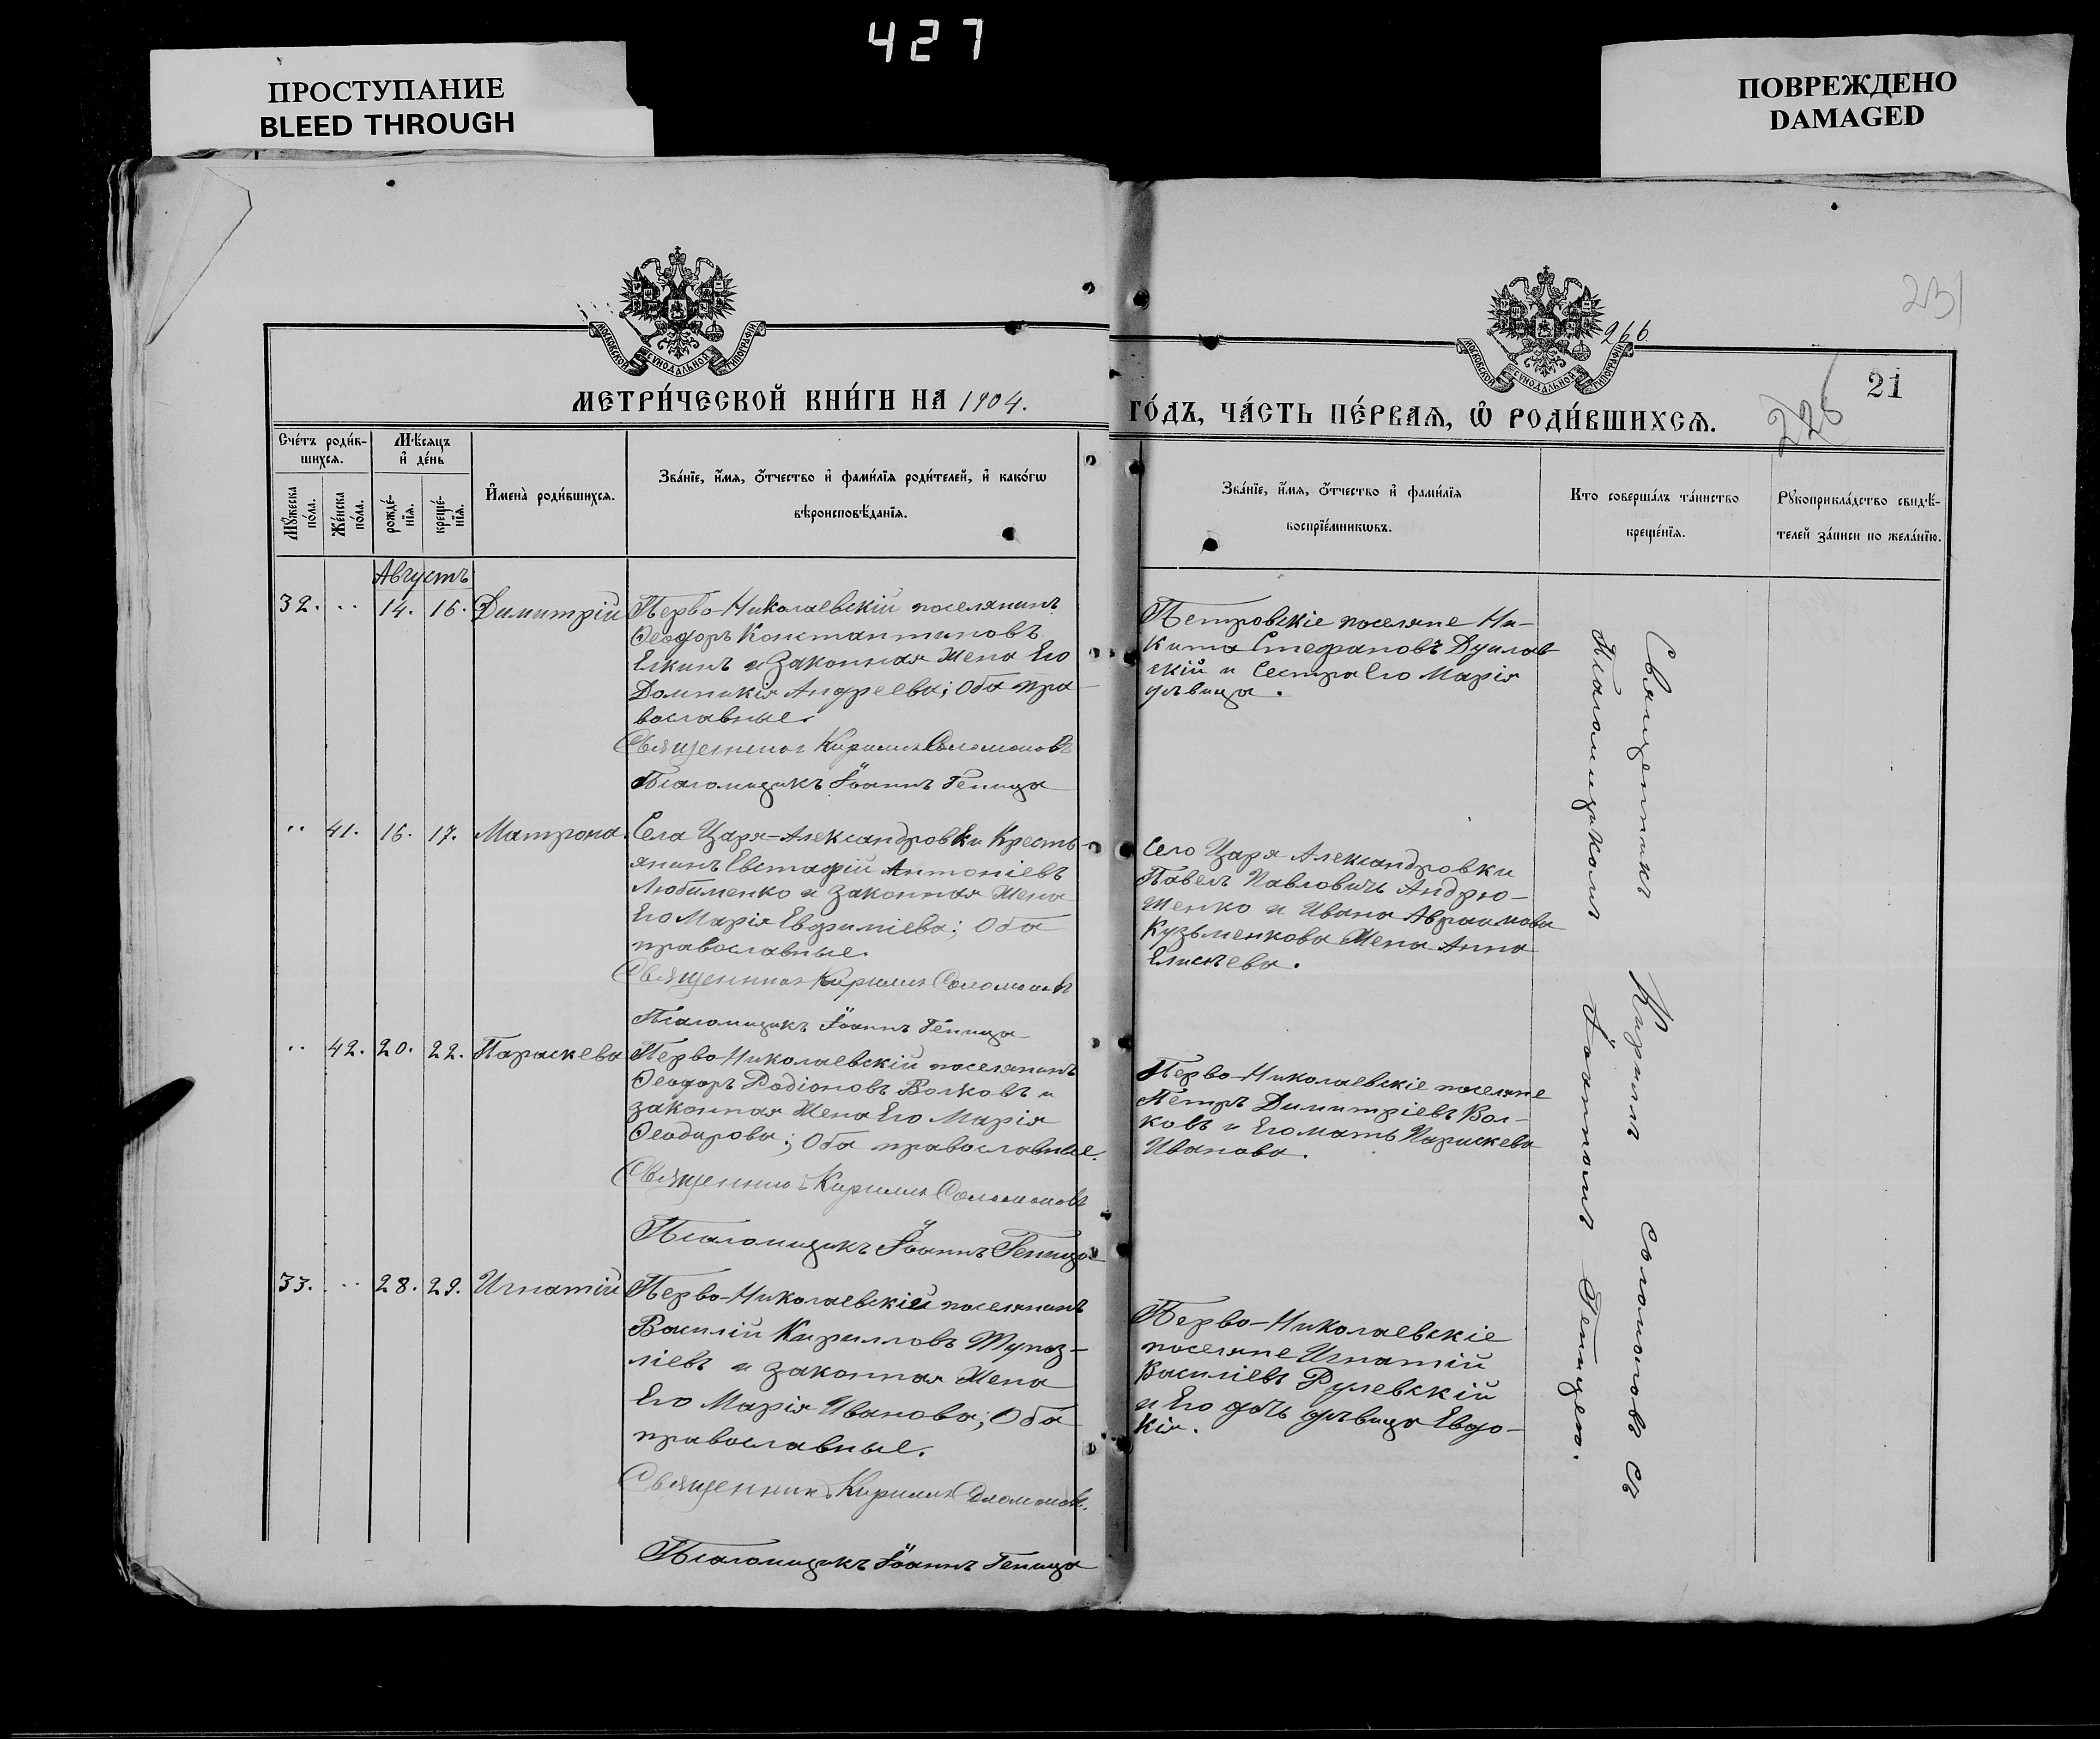 427
ПРОСТУПАНИЕ
BLEED THROUGH
ПОВРЕЖДЕНО
DAMAGED
231
266
226
21
МОСКОВСКОЙ СѴНОДАЛЬНОЙ ТИПОГРАФІИ
МОСКОВСКОЙ СѴНОДАЛЬНОЙ ТИПОГРАФІИ
МЕТРИ́ЧЕСКОЙ КНИ́ГИ НА 1904.
ГО́ДЪ, ЧА́СТЬ ПЕ́РВАѦ, Ѡ҆ РОДИ́ВШИХСѦ.
Сче́тъ роди́в-
шихсѧ.
Мꙋ́жеска по́ла.
Же́нска по́ла.
Мѣ́сѧцъ
и҆ де́нь
рожде́-
нїѧ.
креще́-
нїѧ.
И҆мена̀ роди́вшихсѧ.
Зва́нїе, и҆́мѧ, ѻ҆́тчество и҆ фами́лїѧ роди́телей, и҆ како́гѡ
вѣроисповѣ́данїѧ.
Зва́нїе, и҆́мѧ, ѻ҆́тчество и҆ фами́лїѧ
воспрїе́мникѡвъ.
Кто соверша́лъ та́инство
креще́нїѧ.
Рꙋкоприкла́дство свидѣ́-
телей за́писи по жела́нїю.
Августъ
32. .. 14. 16. Димитрій
Перво-Николаевскій поселянинъ
Ѳеодоръ Константиновъ
Елкинъ и законная жена его
Домникія Андреева; оба пра-
вославные.
Священникъ Кириллъ Соломоновъ
Псаломщикъ Іоаннъ Гепица
Петровскіе поселяне Ни-
кита Стефановъ
скій и сестра его Марія
дѣвица.
.. 41. 16. 17. Матрона.
Села Царя-Александровки кресть-
янинъ Евстафій Антоніевъ
Любименко и законная жена
его Марія Евфиміева; оба
православные.
Священникъ Кириллъ Соломоновъ
Псаломщикъ Іоаннъ Гепица
Село Царя Александровки
Павелъ Павловичъ Андрю-
щенко и Ивана Авраамова
Кузьменкова жена Анна
Елисѣева.
.. 42. 20. 22. Параскева
Перво-Николаевскій поселянинъ
Ѳеодоръ Родіоновъ Волковъ и
законная жена его Марія
Ѳеодорова; оба православные.
Священникъ Кириллъ Соломоновъ
Псаломщикъ Іоаннъ Гепица
Перво-Николаевскіе поселяне
Петръ Димитріевъ Вол-
ковъ и его мать Параскева
Иванова.
33. .. 28. 29. Игнатій
Перво-Николаевскій поселянинъ
Василій Кирилловъ
и законная жена
его Марія Иванова; оба
православные.
Священникъ Кириллъ Соломоновъ.
Псаломщикъ Іоаннъ Гепица
Перво-Николаевскіе
поселяне Игнатій
Василіевъ Рулевскій
и его дочь дѣвица Евдо-
кія.
Священникъ Кириллъ Соломоновъ съ
Псаломщикомъ Іоанномъ Гепицею.